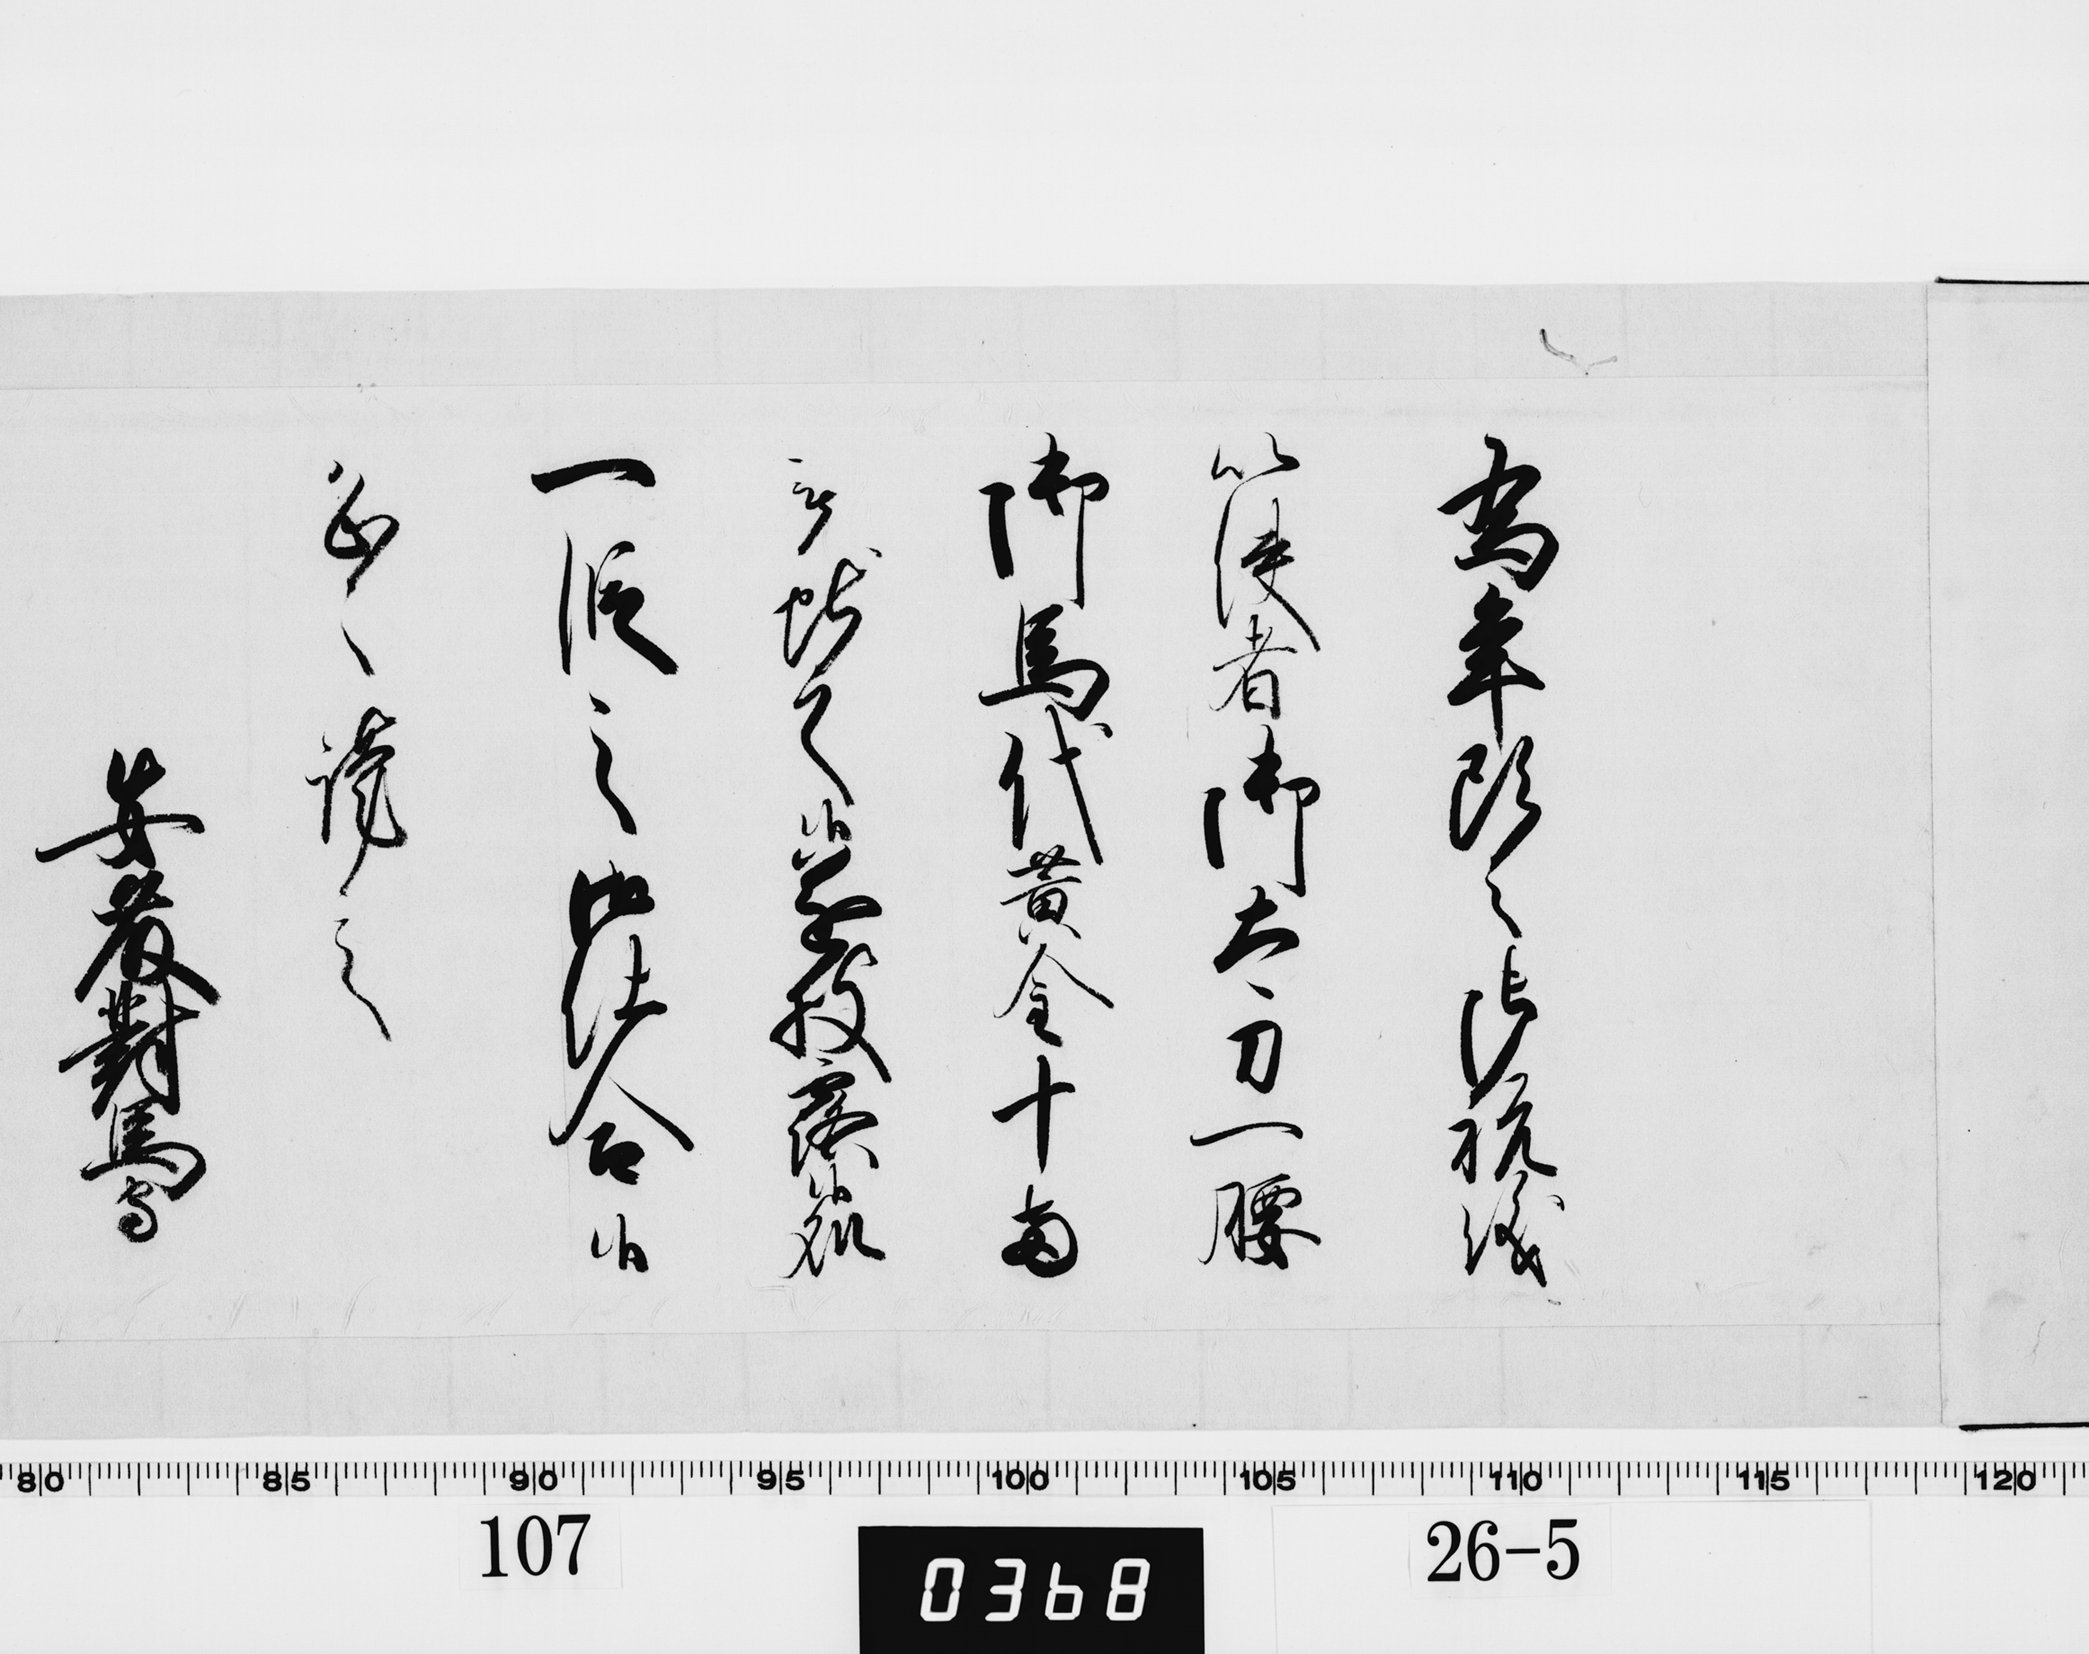 為年頭之御祝儀
以使者御太刀一腰
御馬代黄金十両
被献之候遂披露候処
一段之御仕合候
恐々謹言
安藤對馬守
80 85 90 95 100 105 110 115 120
107
0368
26-5